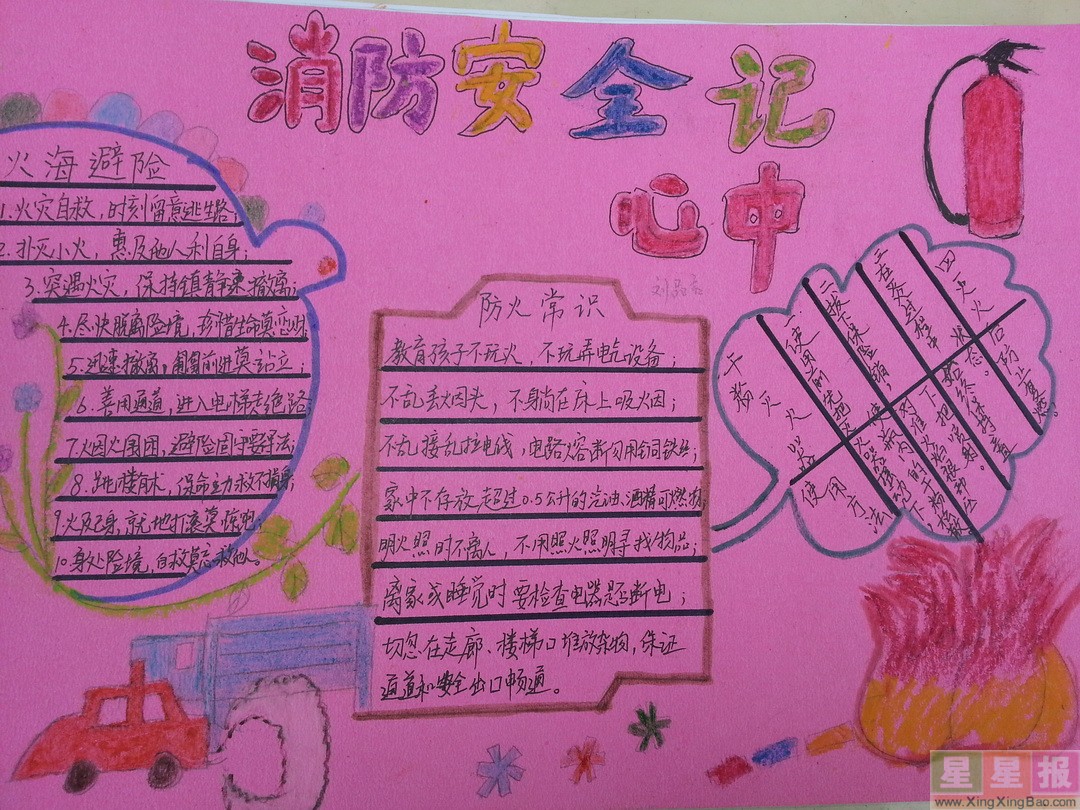 消防安全记
心中
火海避险
1.火灾自救，时刻留意逃生路；
2.扑灭小火，惠及他人利自身；
3.突遇火灾，保持镇静速撤离；
4.尽快脱离险境，珍惜生命莫恋财
5.迅速撤离，匍匐前进莫站立；
6.善用通道，进入电梯走绝路；
7.烟火围困，避险固守要得法；
8.跳楼有术，保命主力救不损身；
9.火及己身，就地打滚莫惊跑；
10.身处险境，自救莫忘救他人。
防火常识
刘
教育孩子不玩火，不玩弄电气设备；
不乱丢烟头，不躺在床上吸烟；
不乱接乱拉电线，电路熔断勿用铜铁丝；
家中不存放超过0.5公升的汽油、酒精可燃物；
明火照时不离人，不用照火照明寻找物品；
离家或睡觉时要检查电器是否断电；
切忽在走廊、楼梯口堆放杂物，保证
通道和安全出口畅通。
干粉灭火器
使用方法
一使用前先把灭火器
二拔下保险销；
三在灭
四灭火后防止复燃。
星星报
www.XingXingBao.com